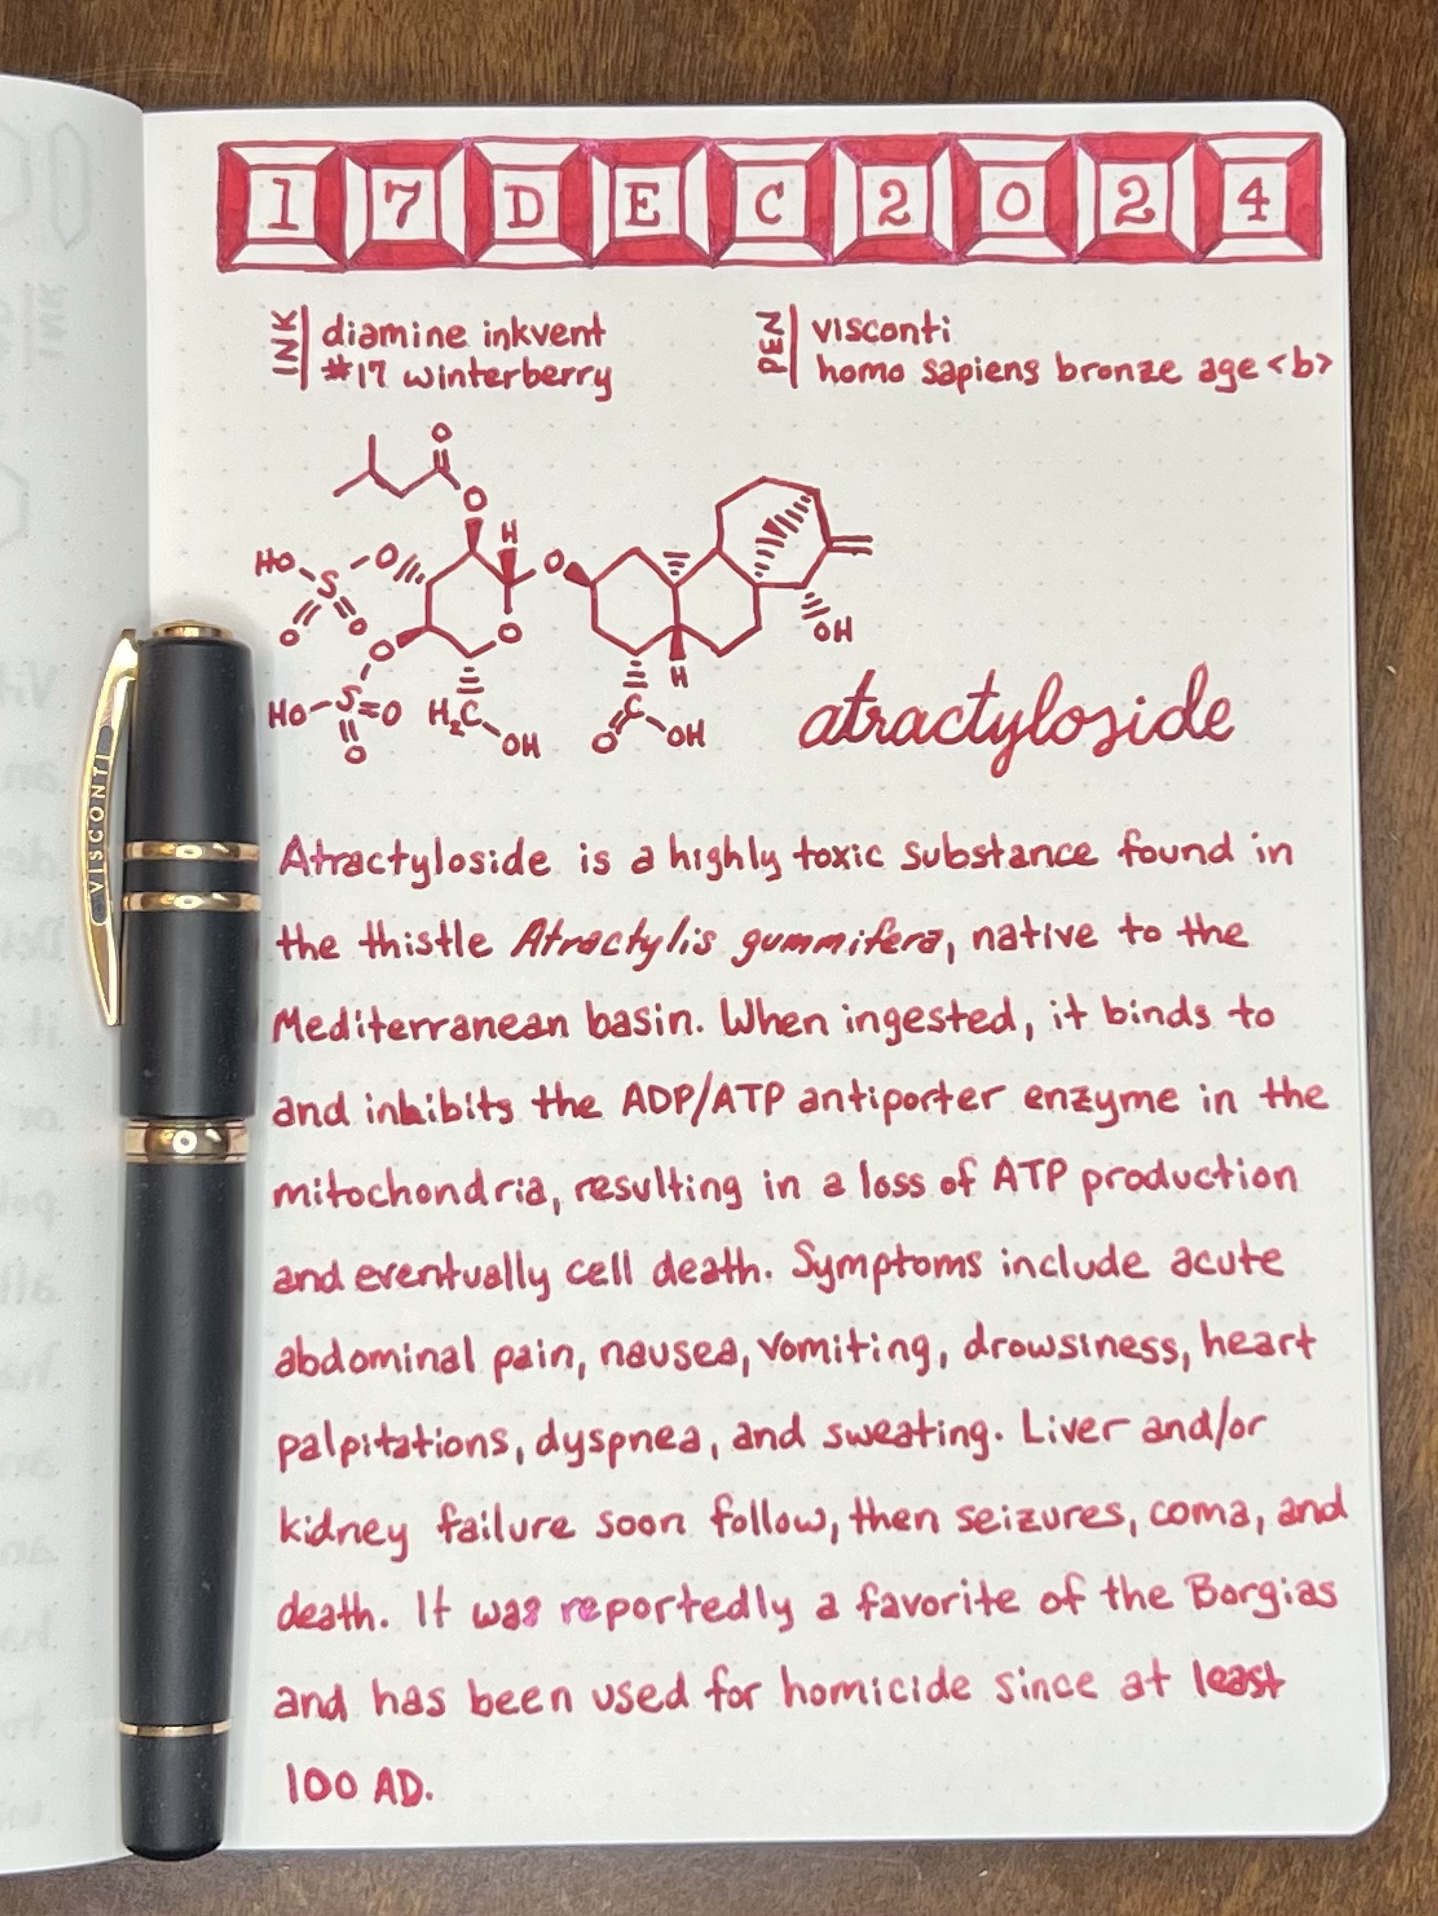 17DEC2024
INK
diamine inkvent
#17 winterberry
PEN
visconti
homo sapiens bronze age <b>
O
O
H
HO
O
O
S
O
O
O
O
OH
HO-S=O
O
H₂C
OH
H
C
O
OH
atractyloside
VISCONTI
Atractyloside is a highly toxic substance found in
the thistle Atractylis gummifera, native to the
Mediterranean basin. When ingested, it binds to
and inhibits the ADP/ATP antiporter enzyme in the
mitochondria, resulting in a loss of ATP production
and eventually cell death. Symptoms include acute
abdominal pain, nausea, vomiting, drowsiness, heart
palpitations, dyspnea, and sweating. Liver and/or
kidney failure soon follow, then seizures, coma, and
death. It was reportedly a favorite of the Borgias
and has been used for homicide since at least
100 AD.